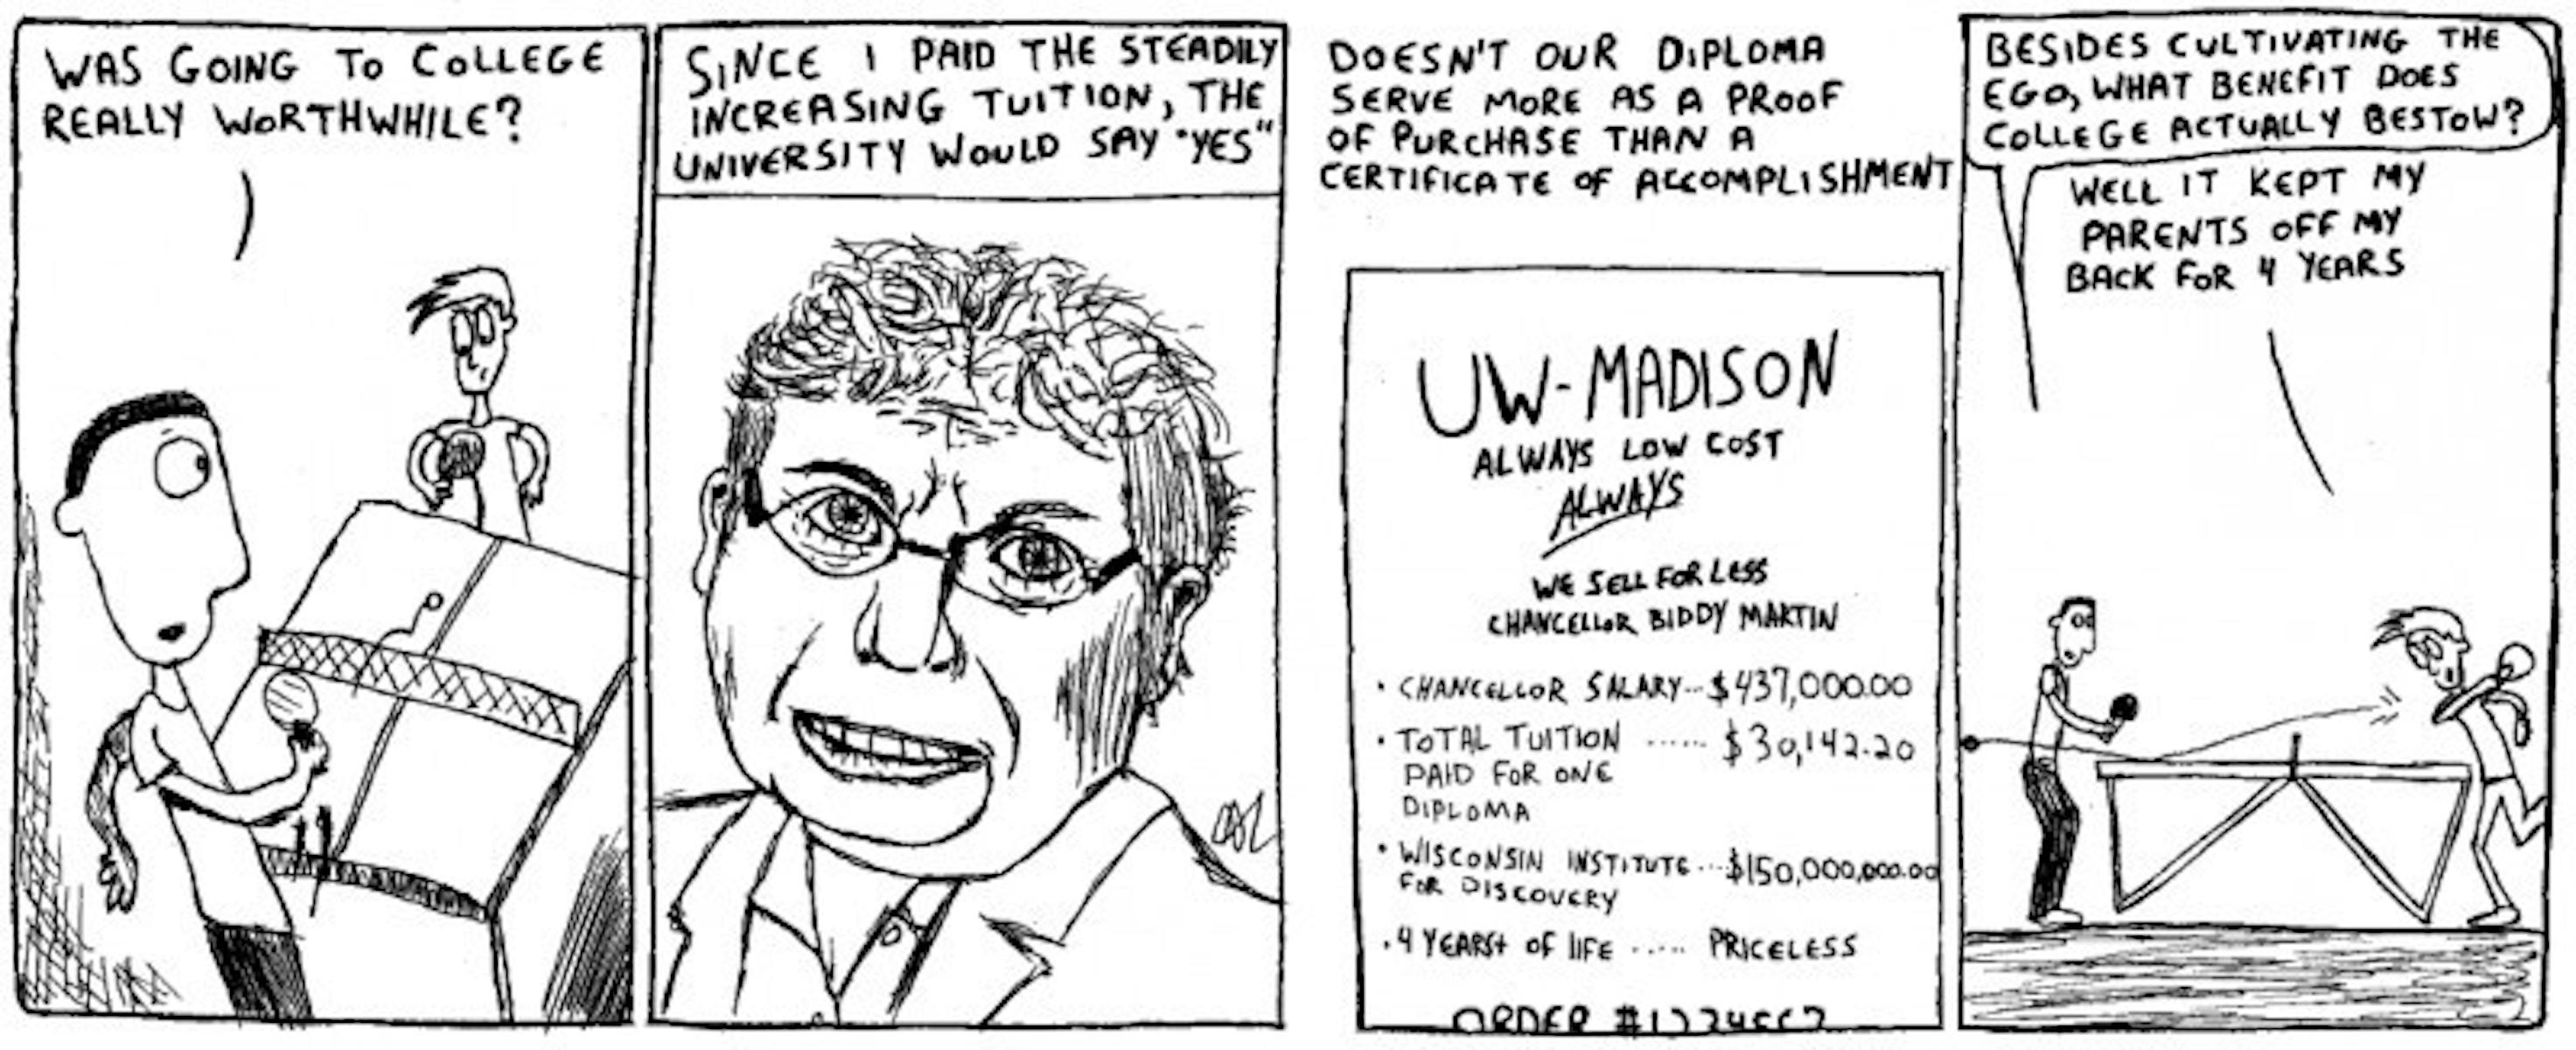 WAS GOING TO COLLEGE
REALLY WORTHWHILE?
SINCE I PAID THE STEADILY
INCREASING TUITION, THE
UNIVERSITY WOULD SAY "YES"
DOESN'T OUR DIPLOMA
SERVE MORE AS A PROOF
OF PURCHASE THAN A
CERTIFICATE OF ACCOMPLISHMENT
UW-MADISON
ALWAYS LOW COST
ALWAYS
WE SELL FOR LESS
CHANCELLOR BIDDY MARTIN
• CHANCELLOR SALARY... $437,000.00
• TOTAL TUITION ...... $30,142.20
PAID FOR ONE
DIPLOMA
• WISCONSIN INSTITUTE... $150,000,000.00
FOR DISCOVERY
• 4 YEARS+ OF LIFE ..... PRICELESS
ORDER
BESIDES CULTIVATING THE
EGO, WHAT BENEFIT DOES
COLLEGE ACTUALLY BESTOW?
WELL IT KEPT MY
PARENTS OFF MY
BACK FOR 4 YEARS